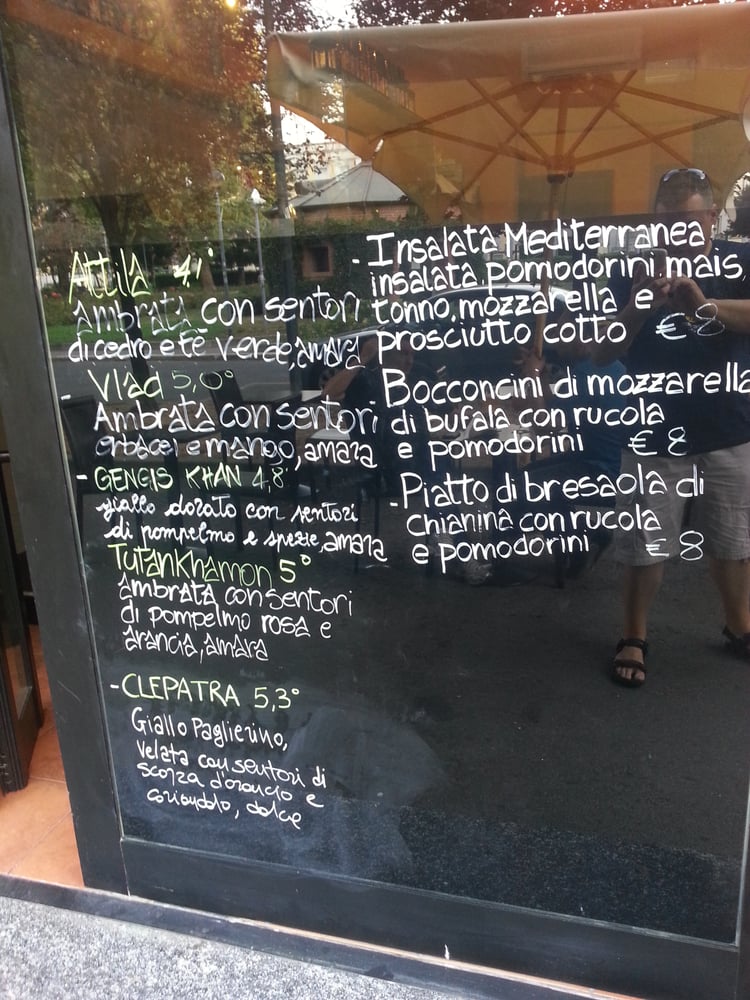 Attila 4,1°
ambrata con sentori
di cedro e tè verde, amara
- Vlad 5,0°
Ambrata con sentori
erbacei e mango, amara
- GENGIS KHAN 4,8°
giallo dorato con sentori
di pompelmo e spezie, amara
Tutankhamon 5°
ambrata con sentori
di pompelmo rosa e
arancia, amara
- CLEPATRA 5,3°
Giallo Paglierino,
velata con sentori di
scorza d'arancio e
coriandolo, dolce
- Insalata Mediterranea
insalata pomodorini, mais,
tonno, mozzarella e
prosciutto cotto € 8
- Bocconcini di mozzarella
di bufala con rucola
e pomodorini € 8
- Piatto di bresaola di
chianina con rucola
e pomodorini € 8